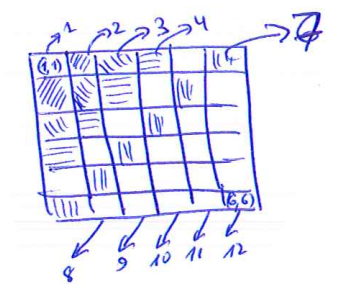 1 2 3 4 7
(1,1)
(6,6)
8 9 10 11 12